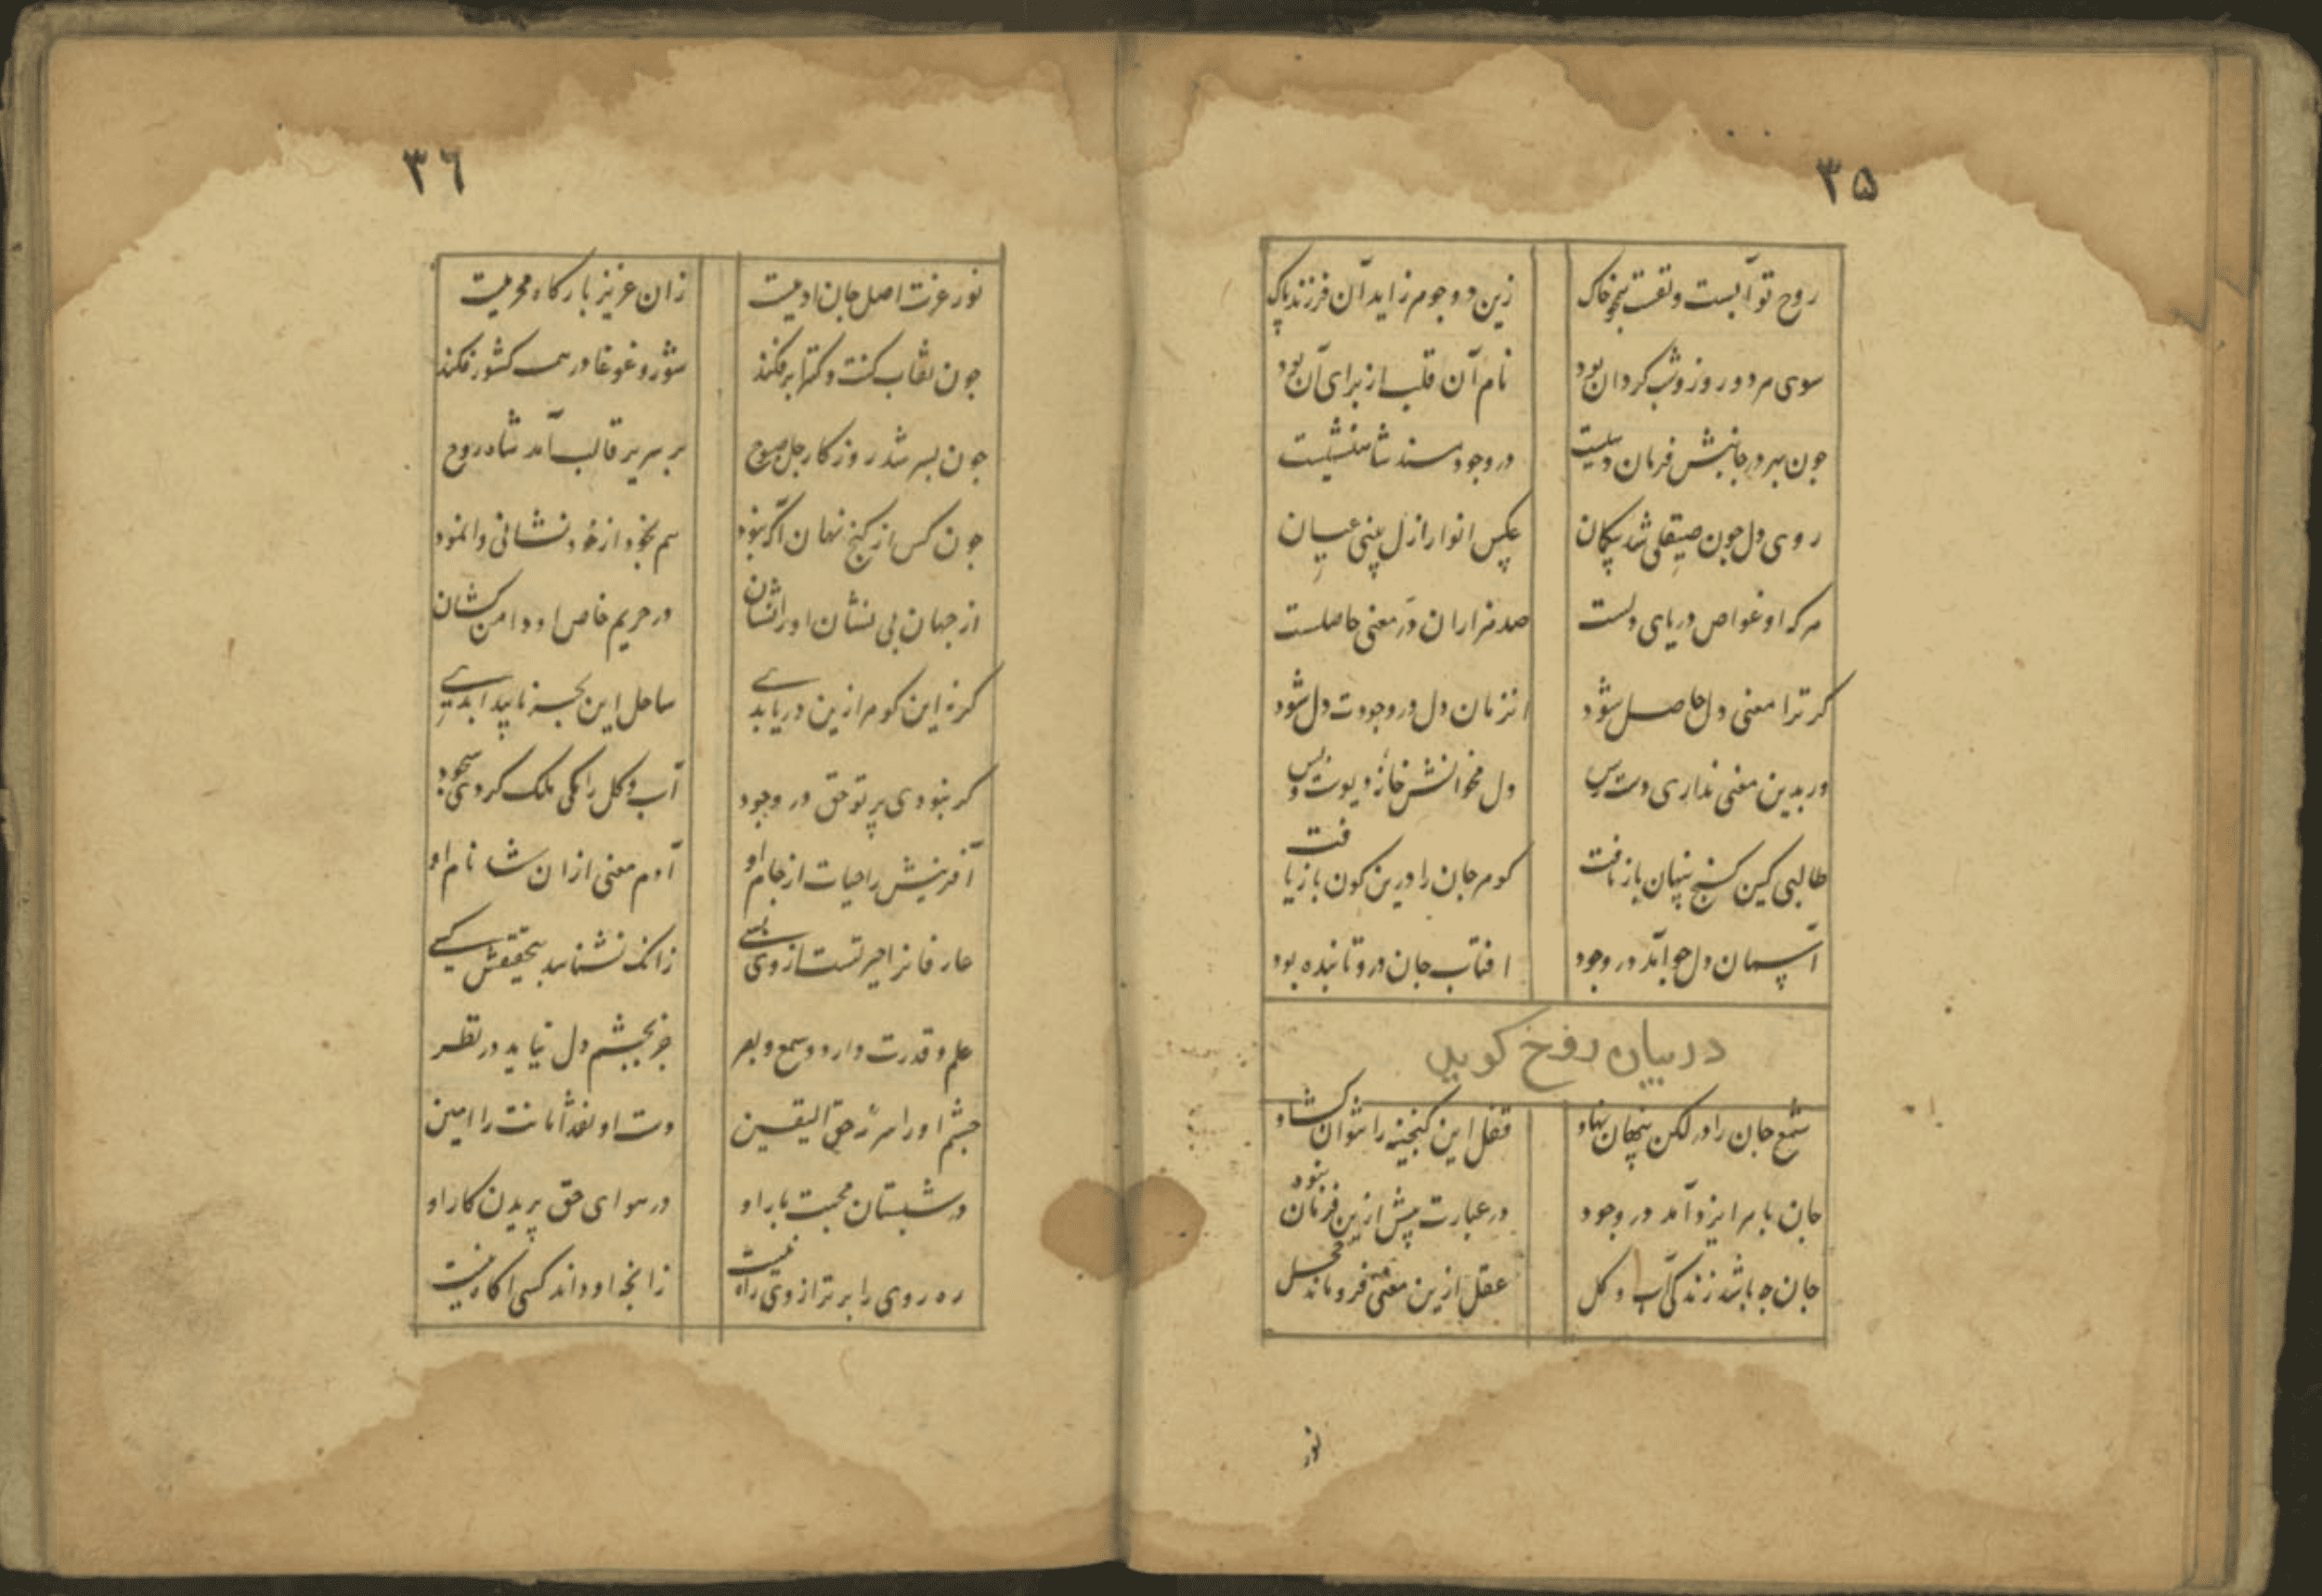 ۳۵
روح تو آبست و نفست همچو خاک زین دو جوهر زاید آن فرزند پاک
سوی هر دو روز و شب کردان بود نام آن قلب از برای آن بود
جون بهر در جانبش فرمان در وجود مسند شاهنشهیست
روی دل جون صیقلی شد بیکمان عکس انوار ازل بینی عیان
هرکه او غواص دریای دلست صد هزاران در معنی حاصلست
کر ترا معنی دل حاصل شود انزمان دل در وجودت دل شود
ور بدین معنی نداری دست رس دل مخوانش خانه دیوست و بس
طالبی کین کنج پنهان باز یافت کوهر جان را درین کون باز یافت
آسمان دل جو آمد در وجود افتاب جان درو تابنده بود
در بیان روح کوید
شمع جان را در لکن پنهان نهاد قفل این کنجینه را نتوان کشاد
جان بامر ایزد آمد در وجود در عبارت پیش ازین فرمان نبود
جان جه باشد زندکی آب و کل عقل ازین معنی فرو ماند خجل
نور
۳٦
نور عزت اصل جان ادمیست زان عزیز بارکاه محرمیست
جون نقاب کنت کنزا برفکند شور و غوغا در همه کشور فکند
جون بسر شد روزکار جل صبوح بر سریر قالب آمد شاه روح
جون کس از کنج نهان اکه نبود هم بخود از خود نشانی وا نمود
از جهان بی نشان او را نشان در حریم خاص او دامن کشان
کرنه این کوهر ازین دریا بدی ساحل این بحر ناپیدا بدی
کر نبودی پرتو حق در وجود آب و کل را کی ملک کردی سجود
آفرینش را حیات از جام او آدم معنی ازان شد نام او
عارفانرا حیرتست از وی بسی زانک نشناسد بتحقیقش کسی
علم و قدرت دارد و سمع و بصر جز بجشم دل نیاید در نظر
جشم او را سرمه حق الیقین دست او نقد امانت را امین
در شبستان محبت بار او در هوای حق پریدن کار او
ره روی را برتر از وی راه نیست زانجه او داند کسی اکاه نیست